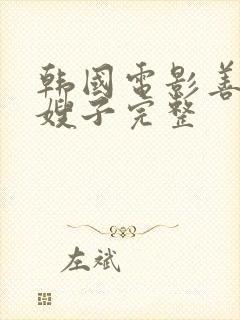 韩国电影善
嫂子完整
左斌